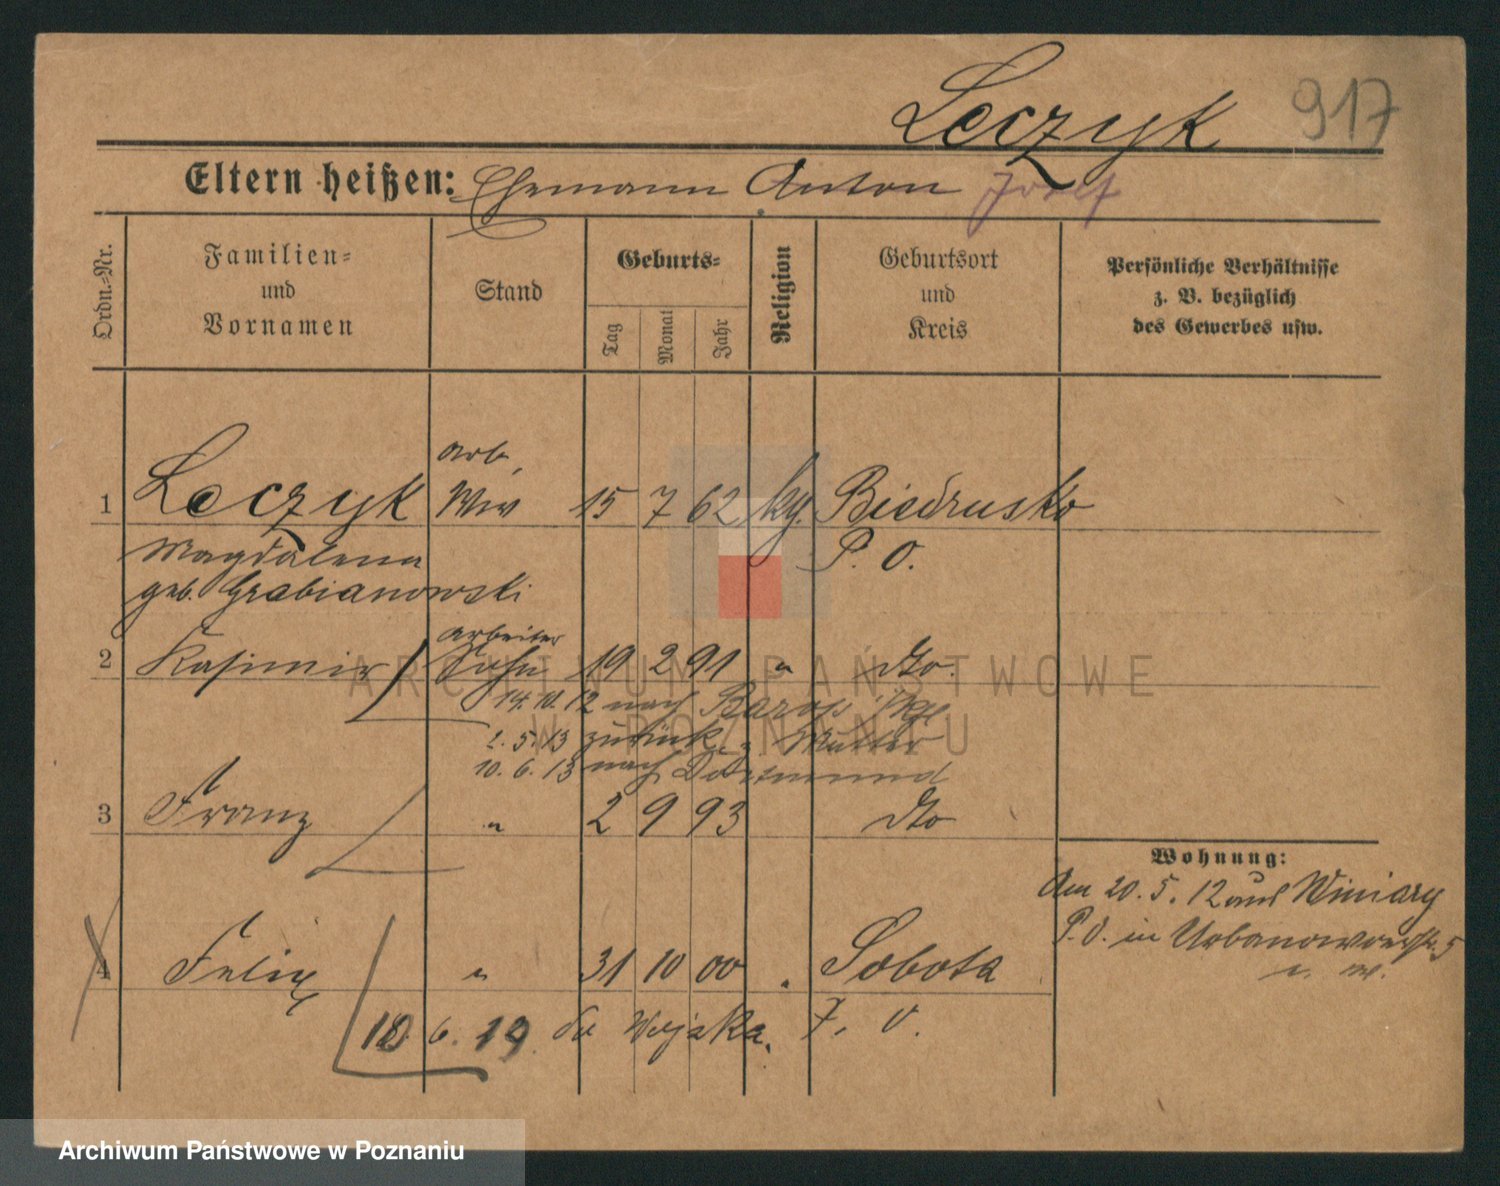 Leczyk 917
Eltern heißen: Ehemann Anton Josef
Ordn.-Nr.
Familien-
und
Vornamen
Stand
Geburts-
Tag
Monat
Jahr
Religion
Geburtsort
und
Kreis
Persönliche Verhältnisse
z. B. bezüglich
des Gewerbes usw.
Arb.
1 Leczyk Ww 15 7 62 kg. Biedrusko
Magdalena P. O.
geb. Grabianowski
Arbeiter
2 Kasimir Sohn 19 2 91 " dto.
14. 10. 12 nach
2. 5. 13 zurück z. Mutter
10. 6. 13 nach Dortmund
3 Franz " 2 9 93 dto
Wohnung:
Am 20. 5. 12 aus Winiary
P. O. in Urbanowoerstr. 5
4 Felix " 31 10 00 " Sobota
18 6. 19. do Wojska.
ARCHIWUM PAŃSTWOWE
W POZNANIU
Archiwum Państwowe w Poznaniu